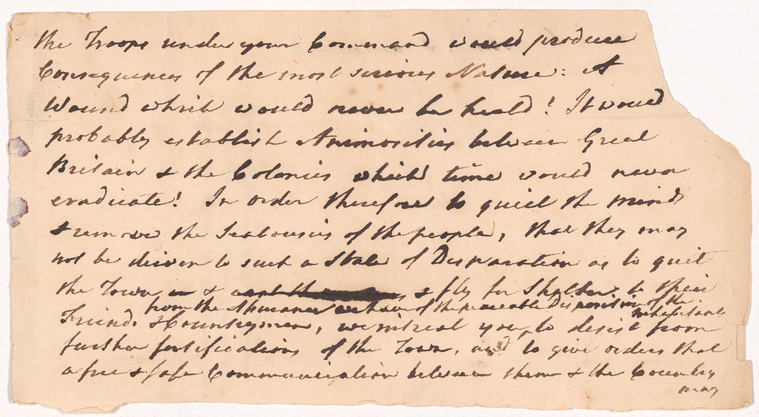 the Troops under your Command would produce
Consequences of the most serious Nature: A
Wound which would never be heal'd! It would
probably establish Animosities between Great
Britain & the Colonies which time would never
eradicate! In order therefore to quiet the minds
& remove the Jealousies of the people, that they may
not be driven to such a State of Desparation as to quit
the Town & fly for Shelter to their
from the Assurance we have of the peaceable Disposition of the inhabitants
Friends & Countrymen, we intreat you, to desist from
further fortifications of the Town, and to give orders that
a free & safe Communication between them & the Country
may